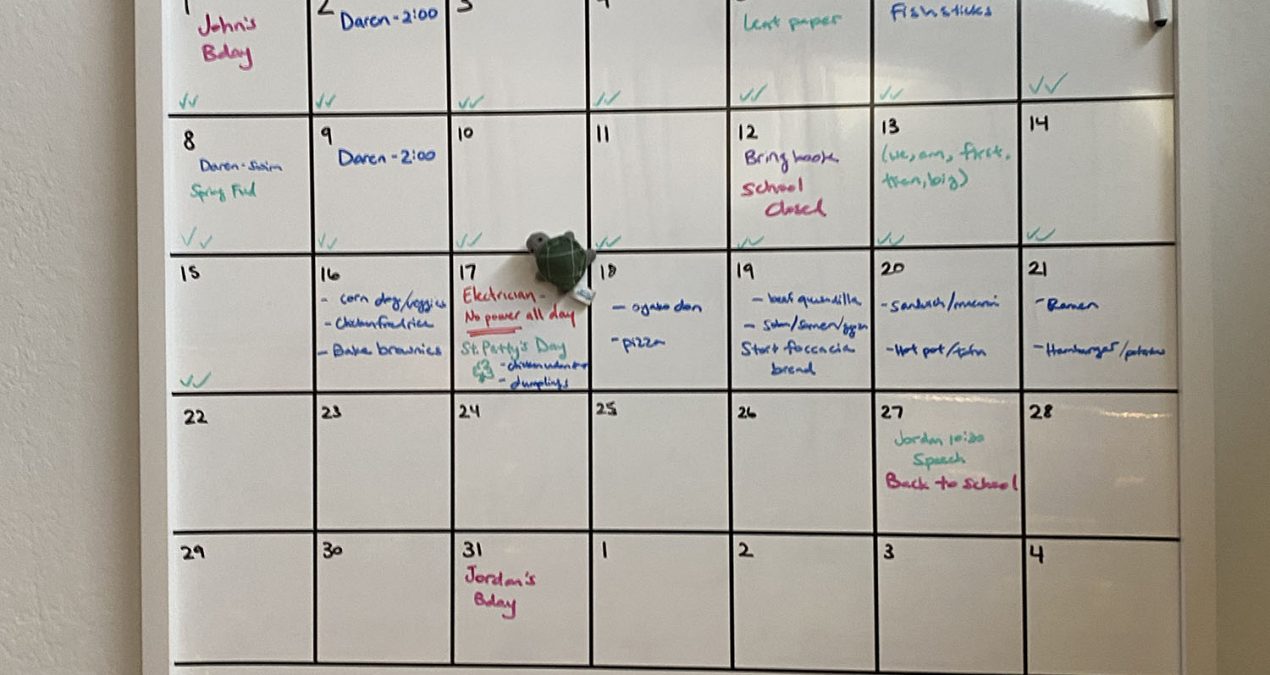 1
John's
Bday
2
Daren - 2:00
3
4
paper
Fish sticks
8
Daren - Swim
Spring
9
Daren - 2:00
10
11
12
Bring book
School
Closed
13
(we, am, first,
then, big)
14
15
16
- corn dog/veggies
- Chicken fried rice
- Bake brownies
17
Electrician -
No power all day
St. Patty's Day
- chicken
- dumplings
18
- oyako don
- pizza
19
- beef quesadilla
Start foccacia
bread
20
- Sandwich/
- Hot pot/
21
- Ramen
- Hamburger/potatoes
22
23
24
25
26
27
Jordan
Speech
Back to School
28
29
30
31
Jordan's
Bday
1
2
3
4